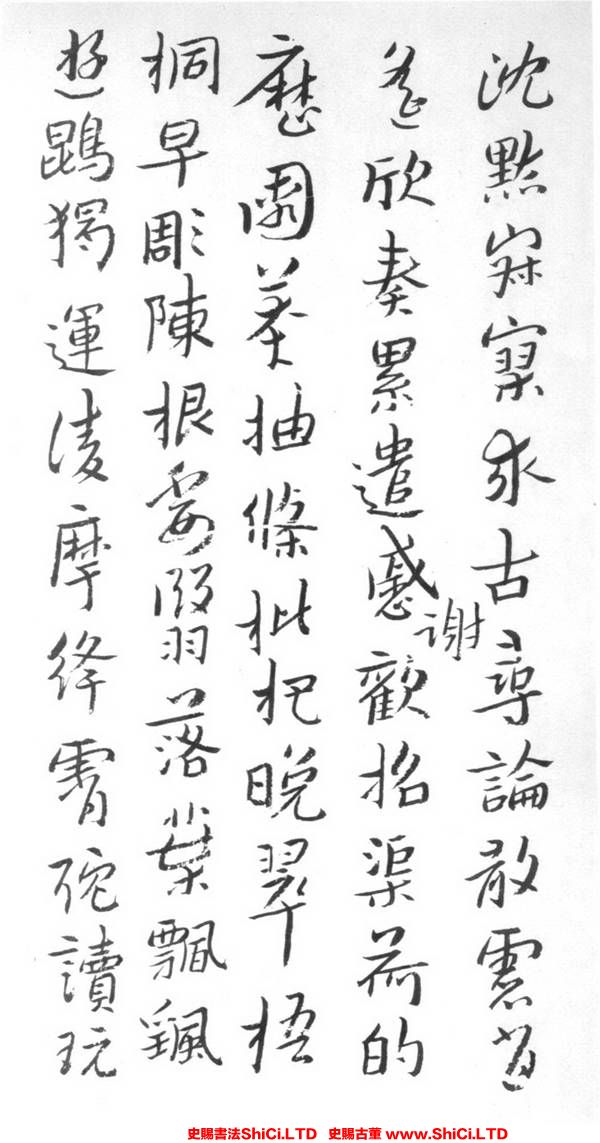 沈默寂寥求古尋論散慮逍
遙欣奏累遣慼謝歡招渠荷的
歷園莽抽條枇杷晚翠梧
桐早彫陳根委翳落葉飄颻
遊鵾獨運凌摩絳霄耽讀玩
史賜書法ShiCi.LTD 史賜古董 www.ShiCi.LTD